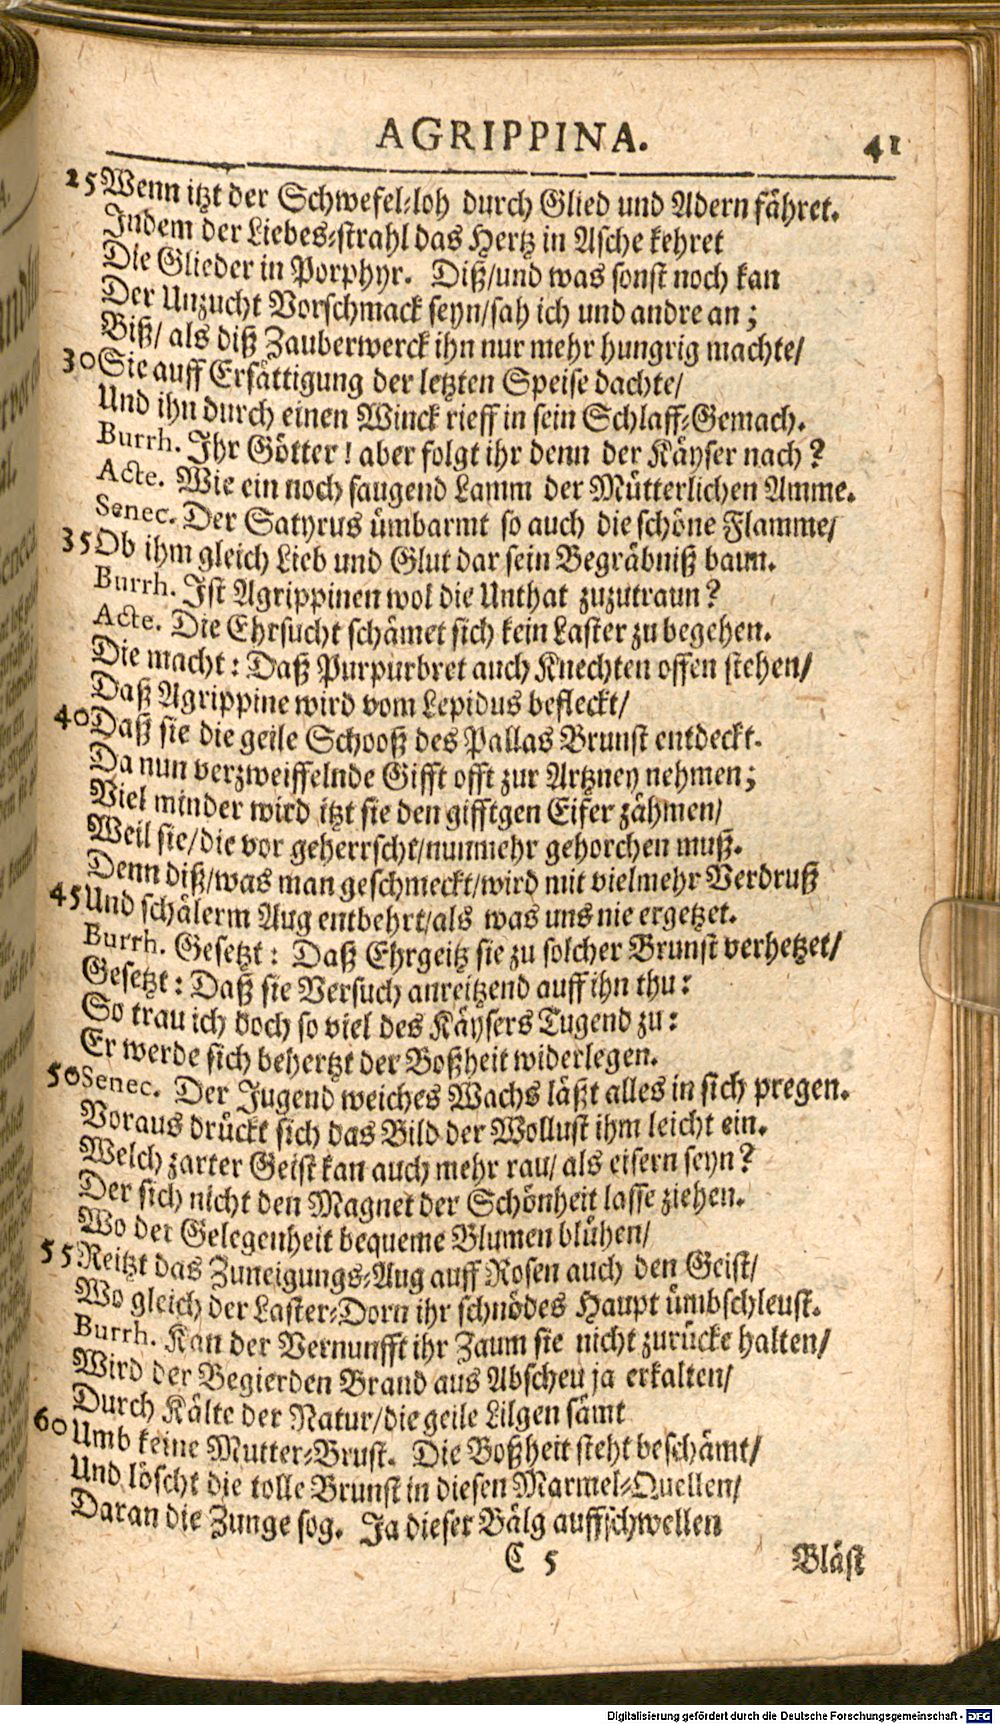 AGRIPPINA. 41
25 Wenn itzt der Schwefel-loh durch Glied und Adern fähret.
Indem der Liebes-strahl das Hertz in Asche kehret
Die Glieder in Porphyr. Diß/und was sonst noch kan
Der Unzucht Vorschmack seyn/sah ich und andre an;
Biß/ als diß Zauberwerck ihn nur mehr hungrig machte/
30 Sie auff Ersättigung der letzten Speise dachte/
Und ihn durch einen Winck rieff in sein Schlaff-Gemach.
Burrh. Ihr Götter! aber folgt ihr denn der Käyser nach?
Acte. Wie ein noch saugend Lamm der Mütterlichen Amme.
Senec. Der Satyrus ümbarmt so auch die schöne Flamme/
35 Ob ihm gleich Lieb und Glut dar sein Begräbniß baun.
Burrh. Ist Agrippinen wol die Unthat zuzutraun?
Acte. Die Ehrsucht schämet sich kein Laster zu begehen.
Die macht: Daß Purpurbret auch Knechten offen stehen/
Daß Agrippine wird vom Lepidus befleckt/
40 Daß sie die geile Schooß des Pallas Brunst entdeckt.
Da nun verzweiffelnde Gifft offt zur Artzney nehmen;
Viel minder wird itzt sie den gifftgen Eifer zähmen/
Weil sie/die vor geherrscht/nunmehr gehorchen muß.
Denn diß/was man geschmeckt/wird mit vielmehr Verdruß
45 Und schälerm Aug entbehrt/als was uns nie ergetzet.
Burrh. Gesetzt: Daß Ehrgeitz sie zu solcher Brunst verhetzet/
Gesetzt: Daß sie Versuch anreitzend auff ihn thu:
So trau ich doch so viel des Käysers Tugend zu:
Er werde sich behertzt der Boßheit widerlegen.
50 Senec. Der Jugend weiches Wachs läßt alles in sich pregen.
Voraus drückt sich das Bild der Wollust ihm leicht ein.
Welch zarter Geist kan auch mehr rau/ als eisern seyn?
Der sich nicht den Magnet der Schönheit lasse ziehen.
Wo der Gelegenheit bequeme Blumen blühen/
55 Reitzt das Zuneigungs-Aug auff Rosen auch den Geist/
Wo gleich der Laster-Dorn ihr schnödes Haupt ümbschleust.
Burrh. Kan der Vernunfft ihr Zaum sie nicht zurücke halten/
Wird der Begierden Brand aus Abscheu ja erkalten/
Durch Kälte der Natur/die geile Lilgen sämt
60 Umb keine Mutter-Brust. Die Boßheit steht beschämt/
Und löscht die tolle Brunst in diesen Marmel-Quellen/
Daran die Zunge sog. Ja dieser Bälg auffschwellen
C 5 Bläst
Digitalisierung gefördert durch die Deutsche Forschungsgemeinschaft - DFG